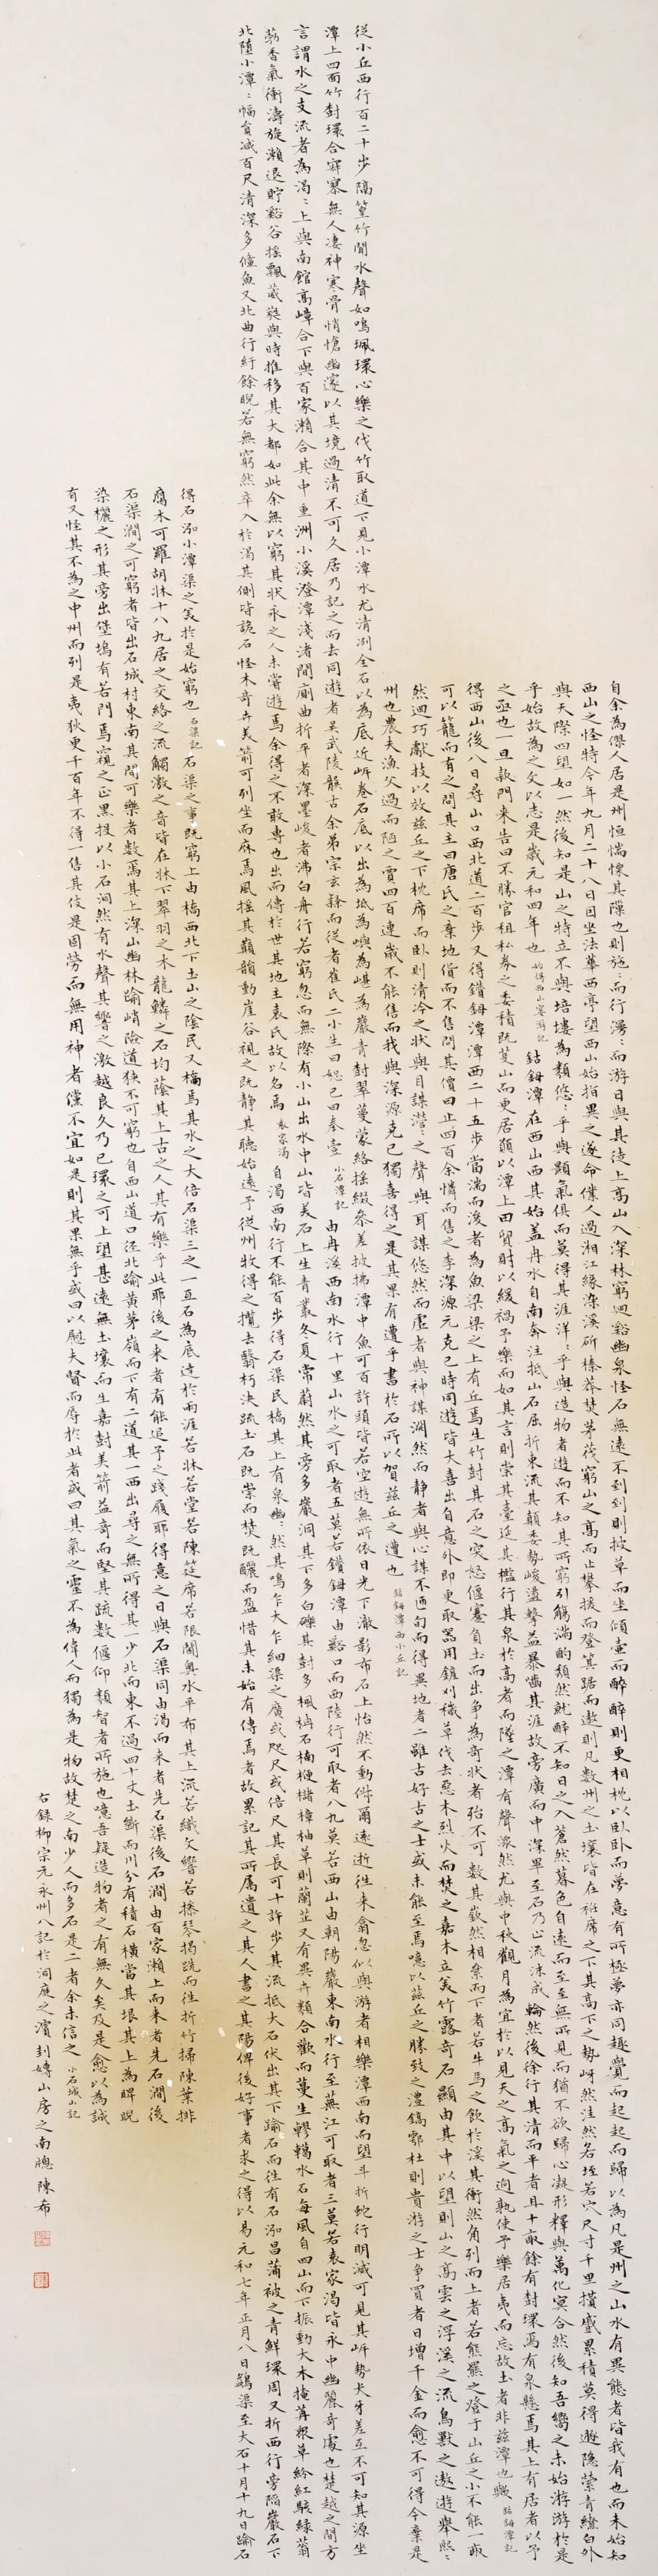 自余為僇人居是州恒惴慄其隟也則施〻而行漫〻而游日與其徒上高山入深林窮迴谿幽泉怪石無遠不到到則披草而坐傾壺而醉醉則更相枕以臥臥而夢意有所極夢亦同趣覺而起起而歸以為凡是州之山水有異態者皆我有也而未始知
西山之怪特今年九月二十八日因坐法華西亭望西山始指異之遂命僕人過湘江緣染溪斫榛莽焚茅茷窮山之高而止攀援而登箕踞而遨則凡數州之土壤皆在衽席之下其高下之勢岈然洼然若垤若穴尺寸千里攢蹙累積莫得遯隱縈青繚白外
與天際四望如一然後知是山之特立不與培塿為類悠〻乎與顥氣俱而莫得其涯洋〻乎與造物者遊而不知其所窮引觴滿酌頹然就醉不知日之入蒼然暮色自遠而至至無所見而猶不欲歸心凝形釋與萬化冥合然後知吾嚮之未始游游於是
乎始故為之文以志是歲元和四年也 始得西山宴游記 鈷鉧潭在西山西其始蓋冉水自南奔注抵山石屈折東流其顛委勢峻盪擊益暴齧其涯故旁廣而中深畢至石乃止流沫成輪然後徐行其清而平者且十畝餘有樹環焉有泉懸焉其上有居者以予
之亟也一旦款門来告曰不勝官租私券之委積既芟山而更居願以潭上田貿財以緩禍予樂而如其言則崇其臺延其檻行其泉於高者而墜之潭有聲潀然尤與中秋觀月為宜於以見天之高氣之迥孰使予樂居夷而忘故土者非茲潭也歟 鈷鉧潭記
得西山後八日尋山口西北道二百步又得鈷鉧潭潭西二十五步當湍而浚者為魚梁梁之上有丘焉生竹樹其石之突怒偃蹇負土而出争為奇狀者殆不可數其嶔然相累而下者若牛馬之飲於溪其衝然角列而上者若熊羆之登于山丘之小不能一畝
可以籠而有之問其主曰唐氏之棄地貨而不售問其價曰止四百余憐而售之李深源元克己時同遊皆大喜出自意外即更取器用鏟刈穢草伐去惡木烈火而焚之嘉木立美竹露奇石顯由其中以望則山之高雲之浮溪之流鳥獸之遨遊舉熙〻
然迴巧獻技以效茲丘之下枕席而臥則清泠之狀與目謀瀯〻之聲與耳謀悠然而虛者與神謀淵然而静者與心謀不匝旬而得異地者二雖古好古之士或未能至焉噫以茲丘之勝致之澧鎬鄠杜則貴游之士争買者日增千金而愈不可得今棄是
州也農夫漁父過而陋之賈四百連歲不能售而我與深源克己獨喜得之是其果有遭乎書於石所以賀茲丘之遭也 鈷鉧潭西小丘記
從小丘西行百二十步隔篁竹聞水聲如鳴珮環心樂之伐竹取道下見小潭水尤清冽全石以為底近岸卷石底以出為坻為嶼為嵁為巖青樹翠蔓蒙絡搖綴參差披拂潭中魚可百許頭皆若空遊無所依日光下澈影布石上怡然不動俶爾遠逝往来翕忽似與游者相樂潭西南而望斗折蛇行明滅可見其岸勢犬牙差互不可知其源坐
潭上四面竹樹環合寂寥無人凄神寒骨悄愴幽邃以其境過清不可久居乃記之而去同遊者吳武陵龔古余弟宗玄隸而從者崔氏二小生曰恕己曰奉壹 小石潭記 由冉溪西南水行十里山水之可取者五莫若鈷鉧潭由谿口而西陸行可取者八九莫若西山由朝陽巖東南水行至蕪江可取者三莫若袁家渴皆永中幽麗奇處也楚越之間方
言謂水之支流者為渴〻上與南館高嶂合下與百家瀨合其中重洲小溪澄潭淺渚間廁曲折平者深墨峻者沸白舟行若窮忽而無際有小山出水中山皆美石上生青叢冬夏常蔚然其旁多巖洞其下多白礫其樹多楓柟石楠楩櫧樟柚草則蘭芷又有異卉類合歡而蔓生轇轕水石每風自四山而下振動大木掩苒衆草紛紅駭綠蓊
葧香氣衝濤旋瀨退貯谿谷搖飄葳蕤與時推移其大都如此余無以窮其狀永之人未嘗遊焉余得之不敢專也出而傳於世其地主袁氏故以名焉 袁家渴 自渴西南行不能百步得石渠民橋其上有泉幽〻然其鳴乍大乍細渠之廣或咫尺或倍尺其長可十許步其流抵大石伏出其下踰石而往有石泓昌蒲被之青鮮環周又折西行旁陷巖石下
北墮小潭〻幅員減百尺清深多鯈魚又北曲行紆餘睨若無窮然卒入於渴其側皆詭石怪木奇卉美箭可列坐而庥焉風搖其巔韻動崖谷視之既静其聽始遠予從州牧得之攬去翳朽決疏土石既崇而焚既釃而盈惜其未始有傳焉者故累記其所屬遺之其人書之其陽俾後好事者求之得以易元和七年正月八日鷁渠至大石十月十九日踰石
得石泓小潭渠之美於是始窮也 石渠記 石渠之事既窮上由橋西北下土山之陰民又橋焉其水之大倍石渠三之一亘石為底達於兩涯若牀若堂若陳筵席若限閫奧水平布其上流若織文響若操琴揭跣而往折竹掃陳葉排
腐木可羅胡牀十八九居之交絡之流觸激之音皆在牀下翠羽之木龍鱗之石均蔭其上古之人其有樂乎此耶後之来者有能追予之踐履耶得意之日與石渠同由渴而来者先石渠後石澗由百家瀨上而来者先石澗後
石渠澗之可窮者皆出石城村東南其間可樂者數焉其上深山幽林踰峭險道狹不可窮也自西山道口徑北踰黃茅嶺而下有二道其一西出尋之無所得其一少北而東不過四十丈土斷而川分有積石橫當其垠其上為睥睨
梁欐之形其旁出堡塢有若門焉窺之正黑投以小石洞然有水聲其響之激越良久乃已環之可上望甚遠無土壤而生嘉樹美箭益奇而堅其疏數偃仰類智者所施也噫吾疑造物者之有無久矣及是愈以為誠
有又怪其不為之中州而列是夷狄更千百年不得一售其伎是固勞而無用神者儻不宜如是則其果無乎或曰以慰夫賢而辱於此者或曰其氣之靈不為偉人而獨為是物故楚之南少人而多石是二者余未信之 小石城山記
右錄柳宗元永州八記於洞庭之濱封嫥山房之南牕 陳布